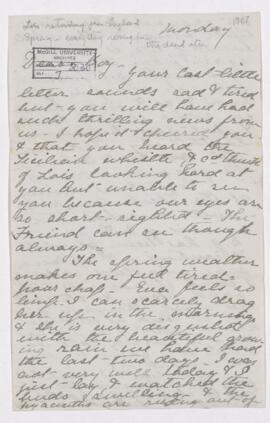 Lois returning from England
1906
Monday
Spring - everything coming up
McGILL UNIVERSITY
ARCHIVES
ACC. NO.
REF.
Boy -
your last little
letter sounds sad & tired
but - you will have had
such thrilling news from
us - I hope it cheered you
& that you heard the
Sicilian whistle & cd think
of Lois looking hard at
you but unable to see
you because our eyes are
so short-sighted - The
Friend can see though
always -
The Spring weather
makes one feel tired -
poor chap. Eva feels so
limp I can scarcely drag
her up in the morning
& she is very disgusted
with the beautiful grow
ing rain we have had
the last two days. I was
not very well today & I
just lay & watched the
buds swelling - & the
hyacinths are rushing out of